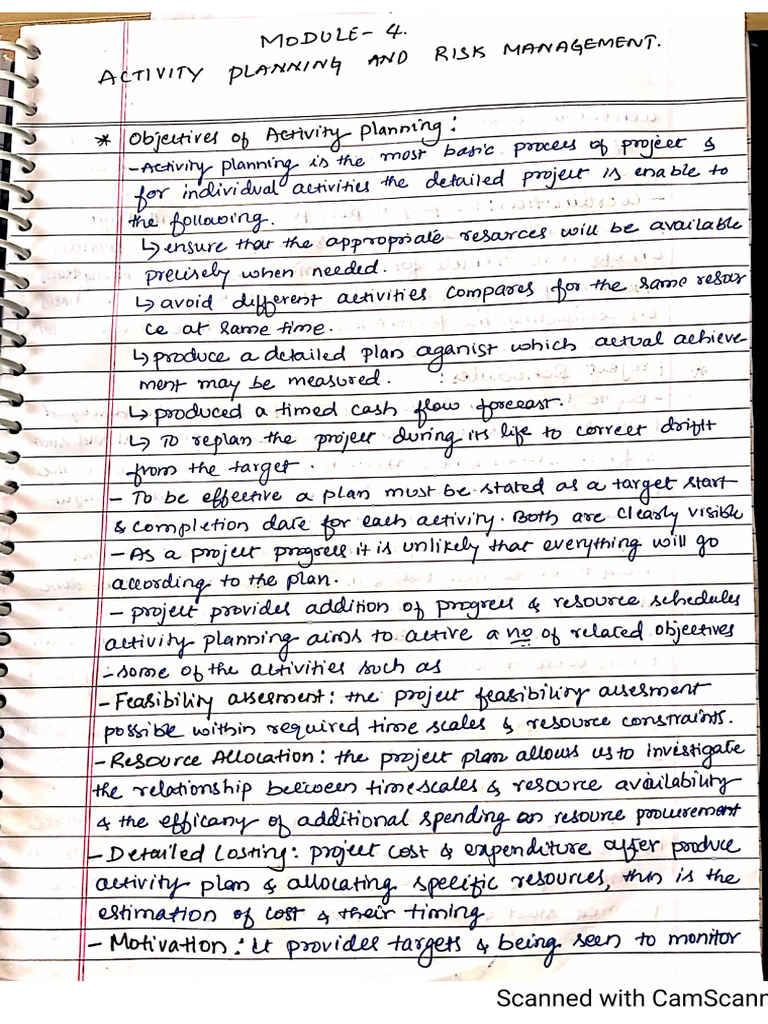 MODULE- 4.
ACTIVITY PLANNING AND RISK MANAGEMENT.
* Objectives of Activity planning:
- Activity planning is the most basic process of project &
for individual activities the detailed project is enable to
the following.
↳ ensure that the appropriate resarces will be available
precisely when needed.
↳ avoid different activities compares for the same resour
ce at same time.
↳ produce a detailed plan aganist which actual achieve
ment may be measured.
↳ produced a timed cash flow forecast.
↳ To replan the project during its life to correct drift
from the target.
- To be effective a plan must be stated as a target start
& completion date for each activity. Both are clearly visible
- As a project progress it is unlikely that everything will go
according to the plan.
- project provides addition of progress & resource schedules
activity planning aims to active a no of related objectives
- some of the activities such as
- Feasibility assesment: the project feasibility assesment
possible within required time scales & resource constraints.
- Resource Allocation: the project plan allows us to investigate
the relationship between timescales & resource availability
& the efficany of additional spending on resource procurement
- Detailed Costing: project cost & expenditure after produce
activity plan & allocating specific resources, this is the
estimation of cost & their timing
- Motivation: It provides targets & being seen to monitor
Scanned with CamScann